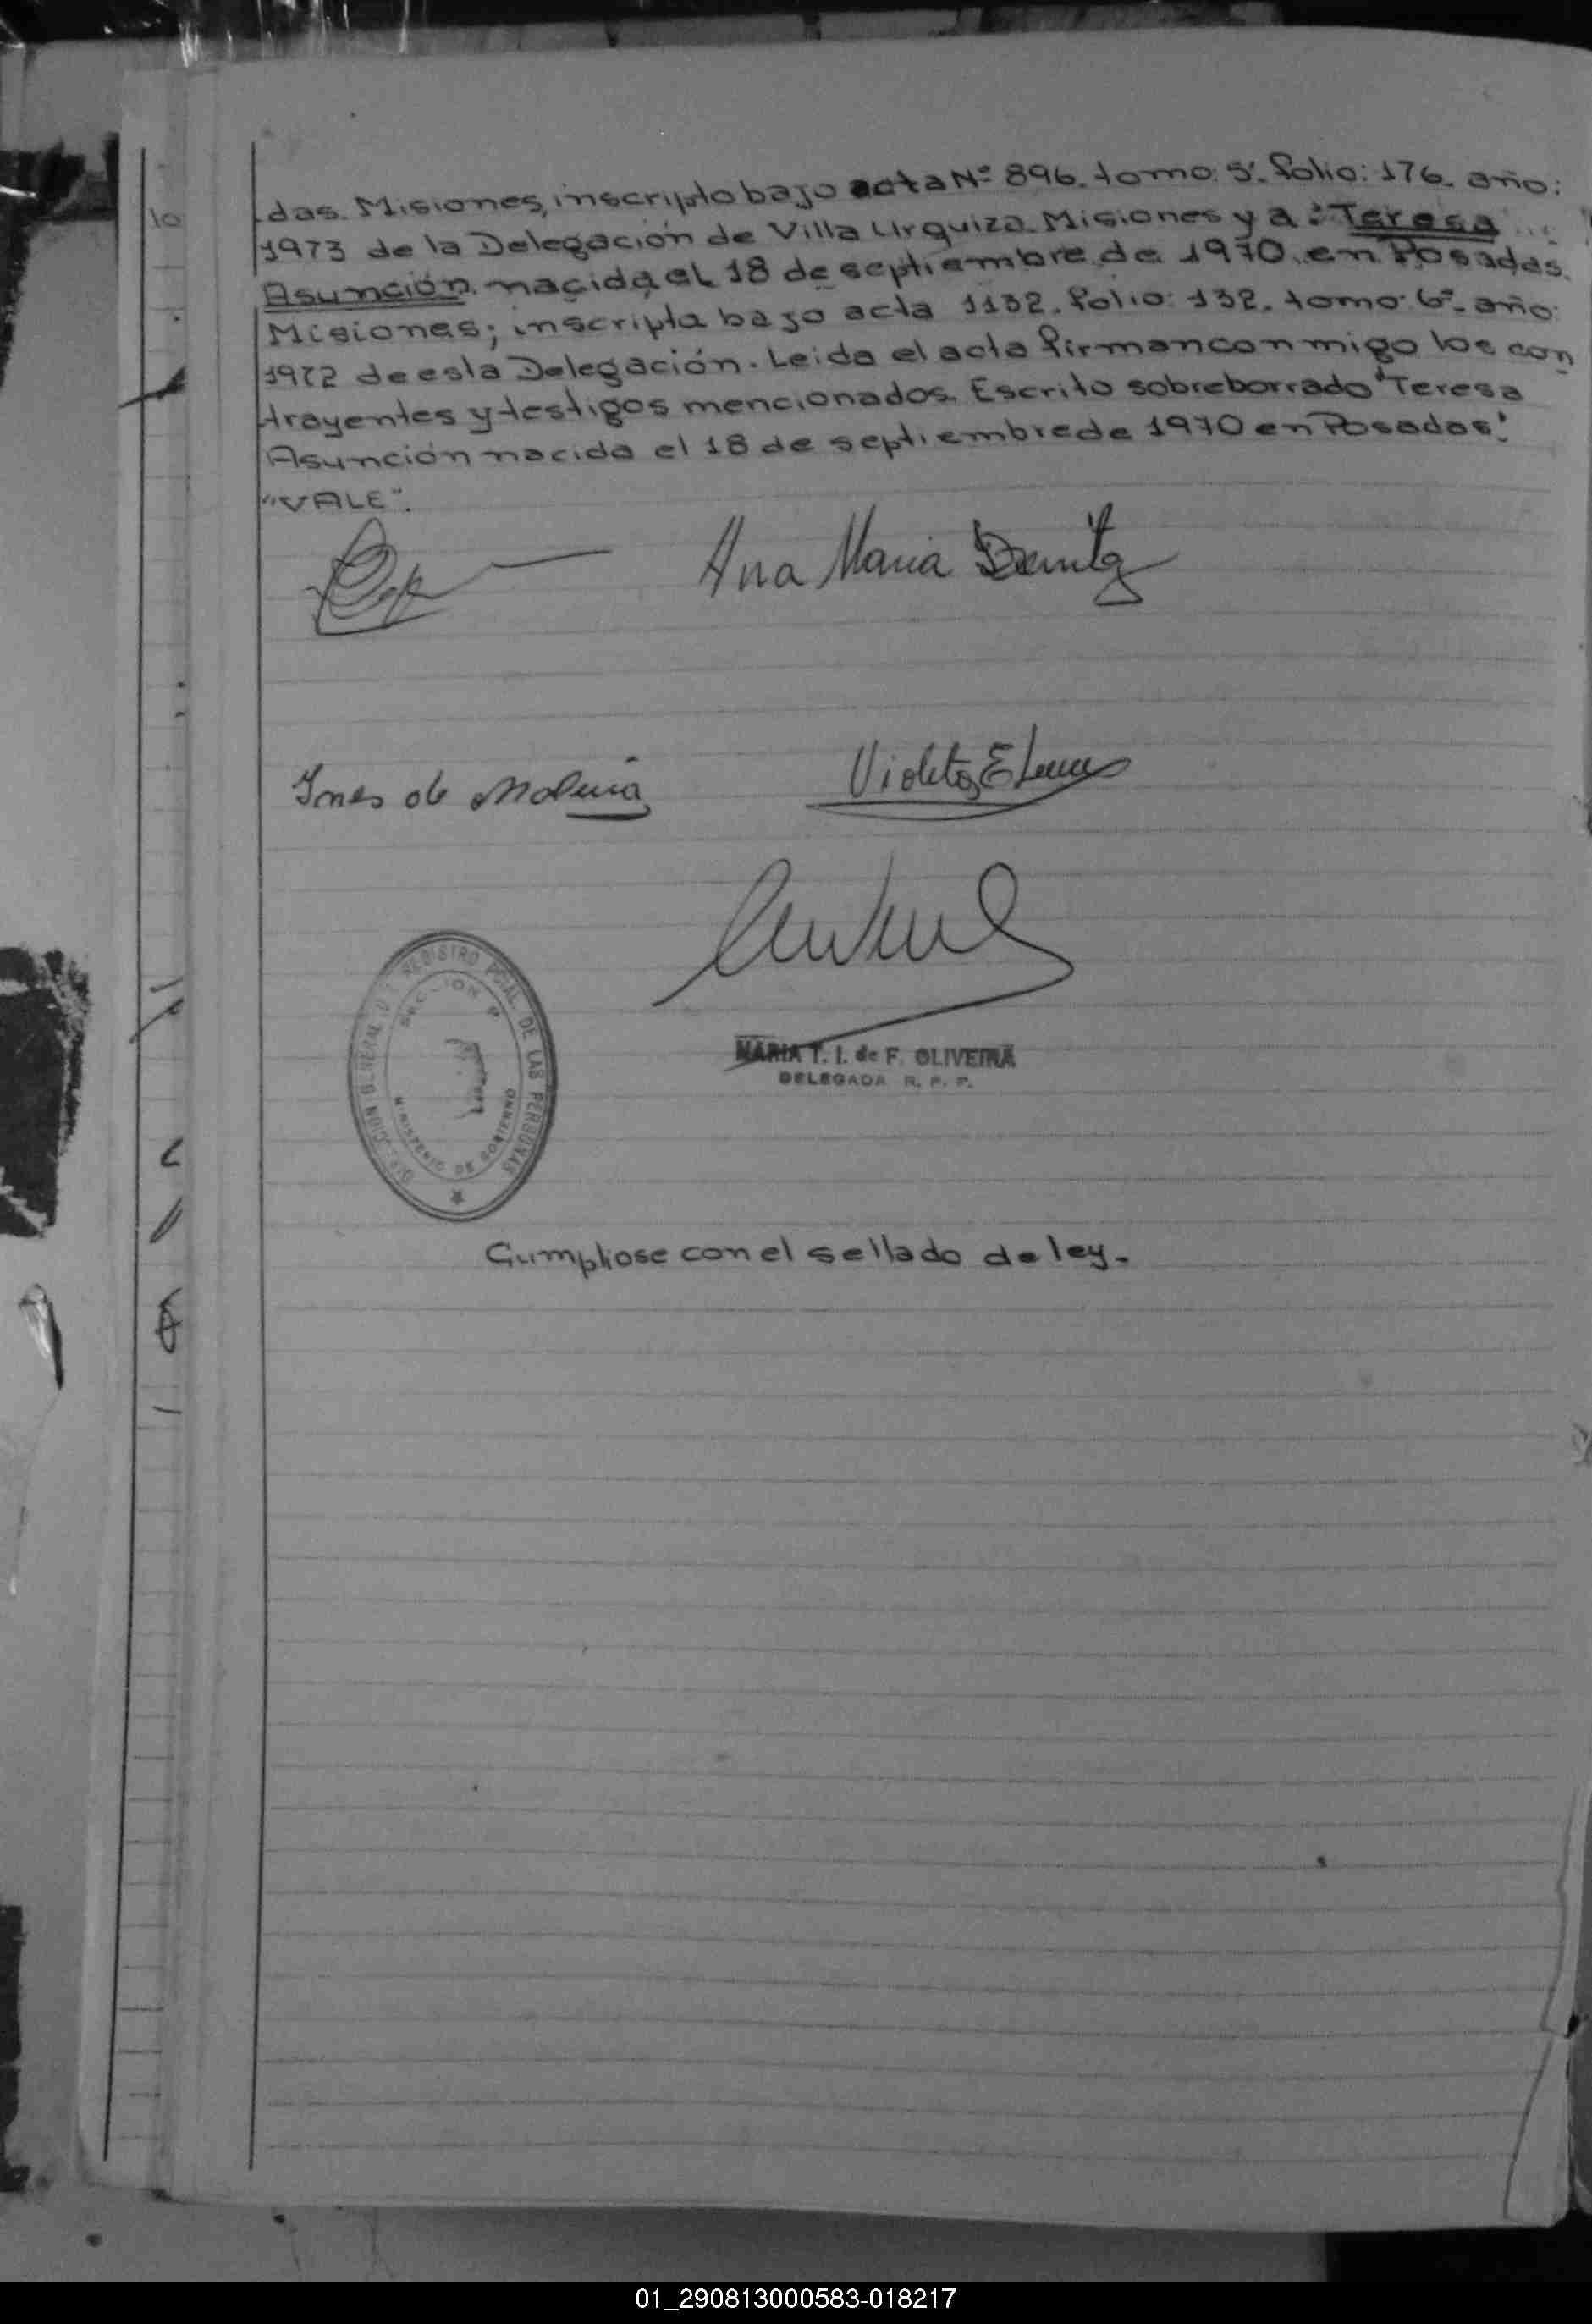 das. Misiones, inscripto bajo acta Nº 896. tomo: 5º. folio: 176. año:
1973 de la Delegación de Villa Urquiza. Misiones y a: Teresa
Asunción. nacida el 18 de septiembre de 1970. en Posadas.
Misiones; inscripta bajo acta 1132. folio: 132. tomo: 6º. año:
1972 de esta Delegación. Leida el acta firman conmigo los con
trayentes y testigos mencionados. Escrito sobreborrado "Teresa
Asunción nacida el 18 de septiembre de 1970 en Posadas".
"VALE".
Ana Maria
Ines de Molina
Violeta E
DIRECCION GENERAL DEL REGISTRO PCIAL DE LAS PERSONAS
SECCION
MINISTERIO DE GOBIERNO
MARIA T. I. de F. OLIVEIRA
DELEGADA R. P. P.
Cumpliose con el sellado de ley.
01_290813000583-018217